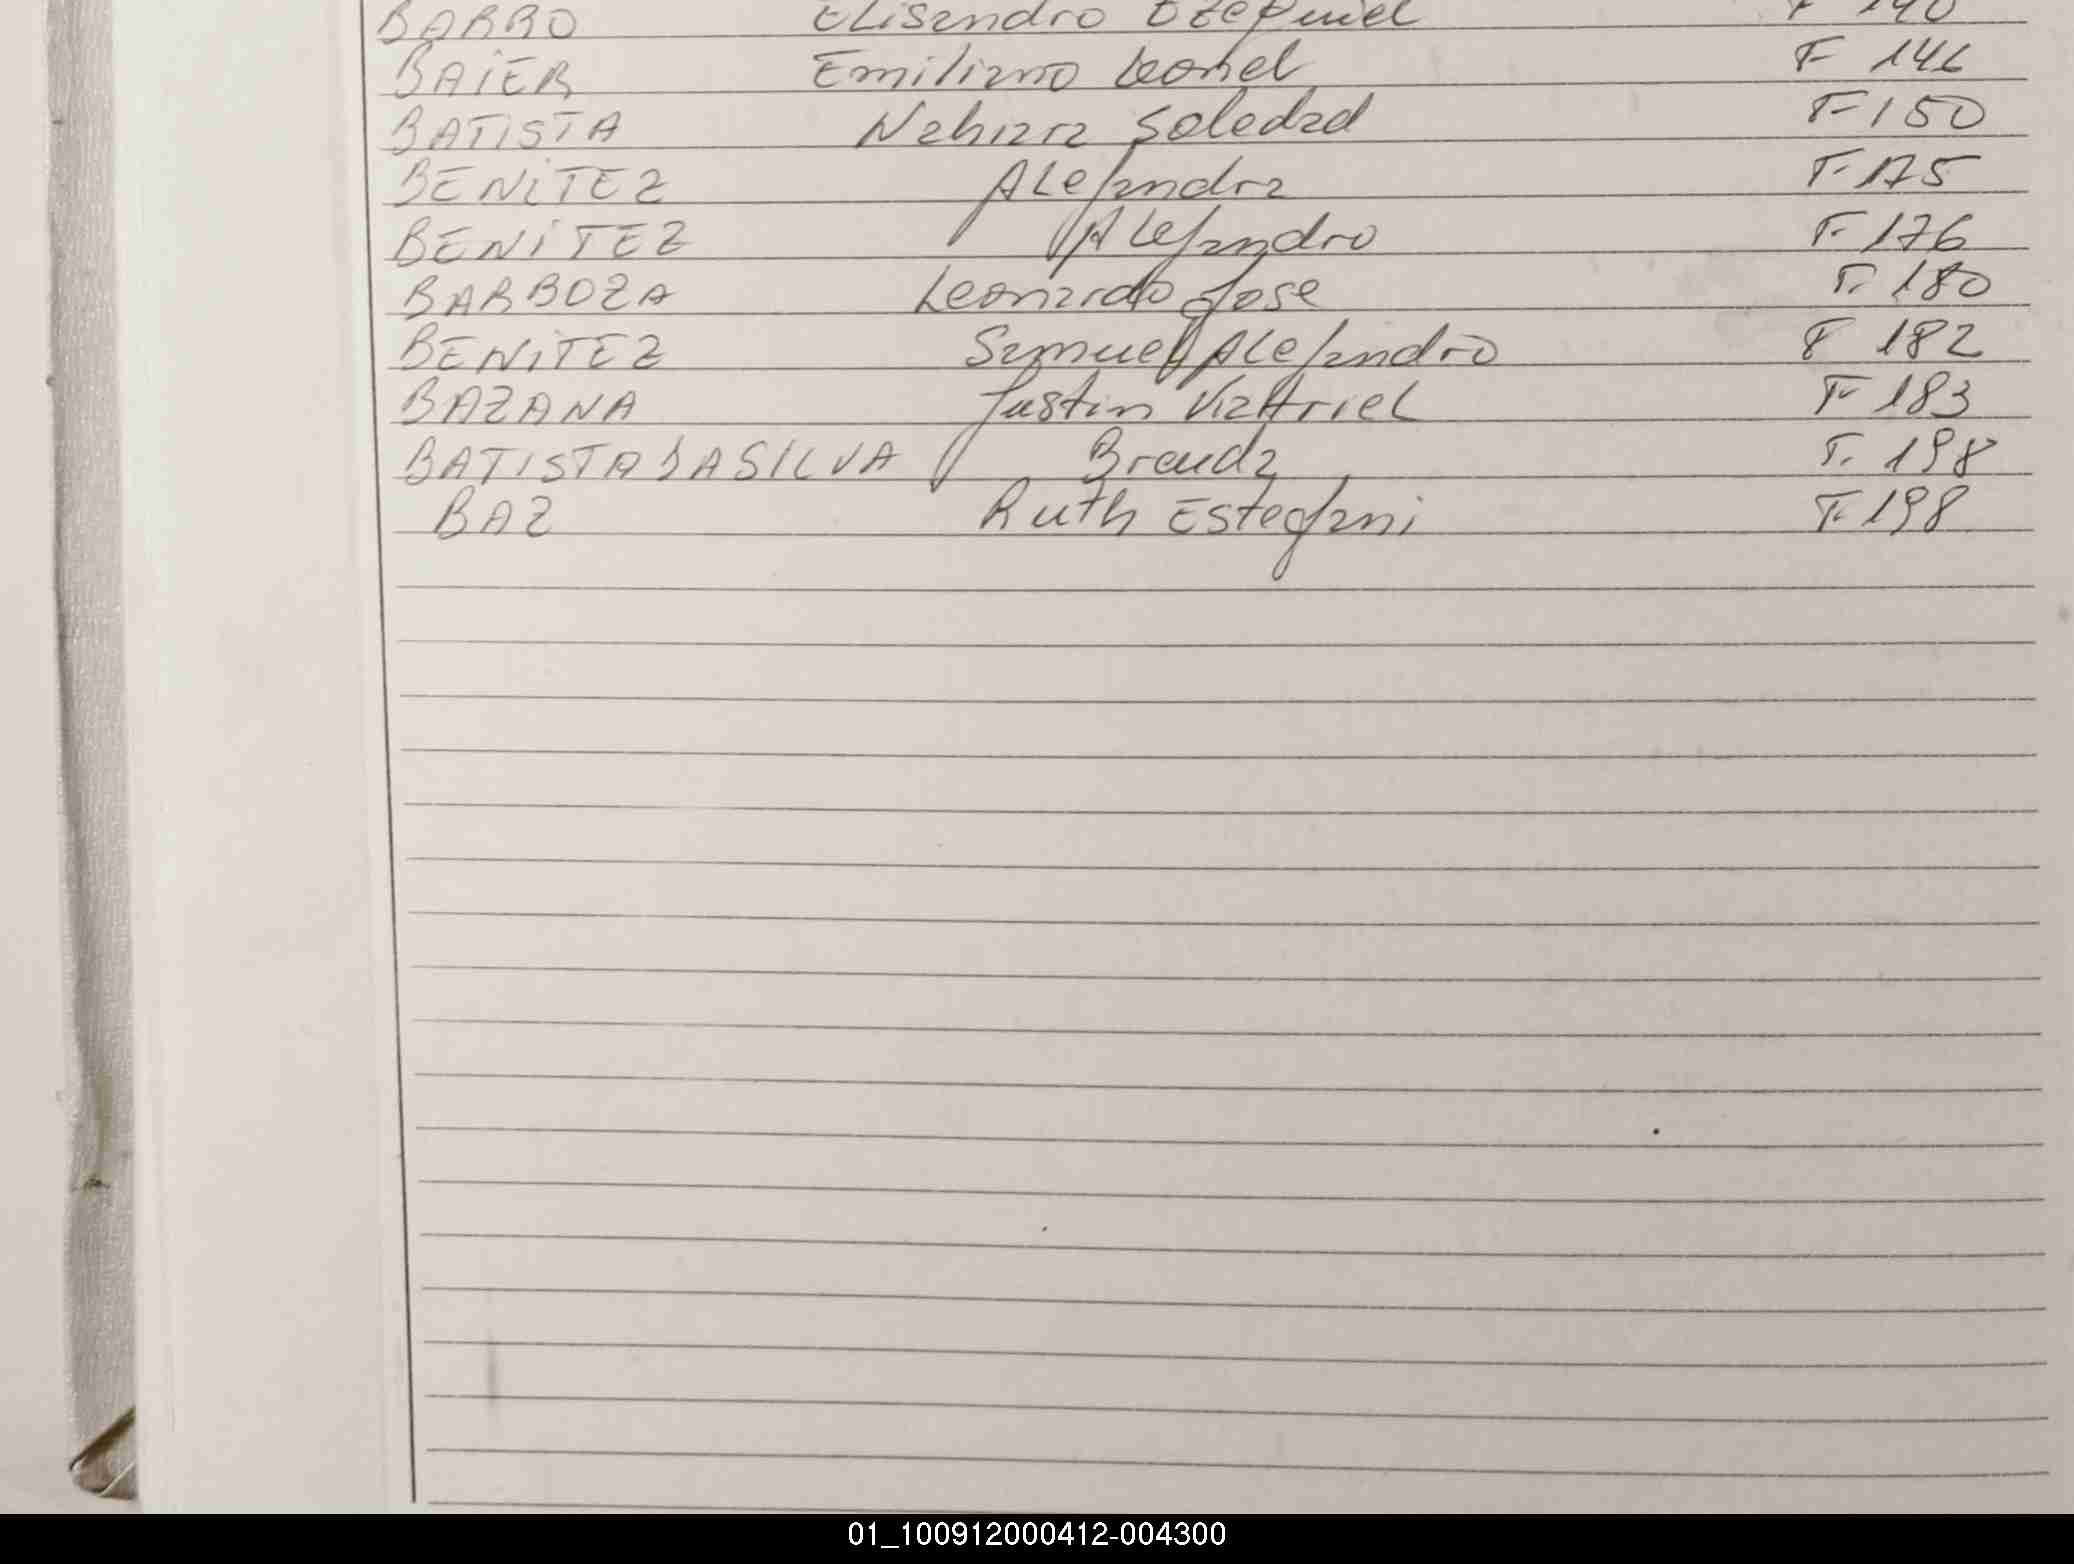 BARRO Elisandro Ezequiel F 140
BAIER Emiliano Leonel F 146
BATISTA Nahiara Soledad F-150
BENITEZ Alejandra F-175
BENITEZ Alejandro F-176
BARBOZA Leonardo Jose F. 180
BENITEZ Samuel Alejandro F 182
BAZANA Justin F 183
BATISTA DA SILVA Brenda F. 198
BAZ Ruth Estefani F. 198
01_100912000412-004300